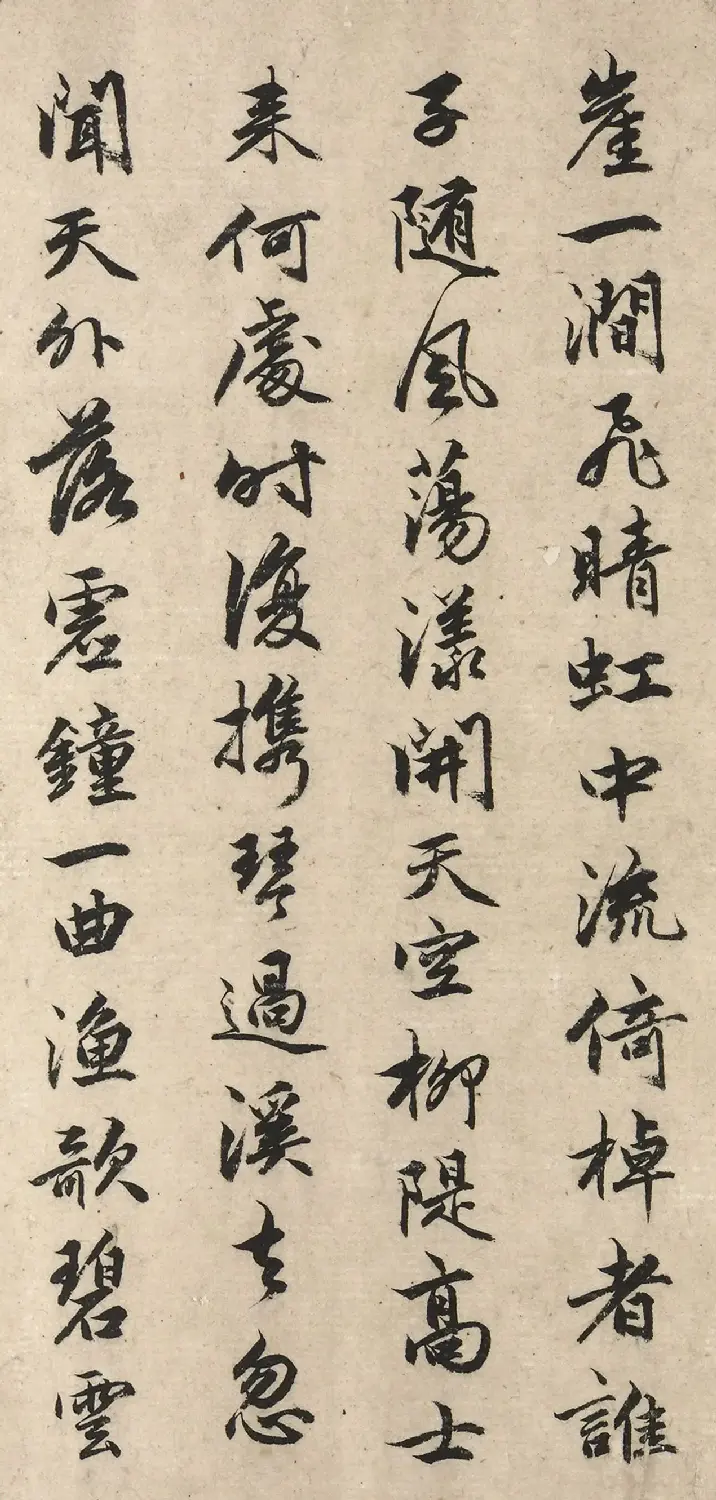 崖一澗飛晴虹中流倚棹者誰
子隨風蕩漾開天空柳隄高士
来何處時復携琴過溪去忽
聞天外落霜鐘一曲漁歌碧雲